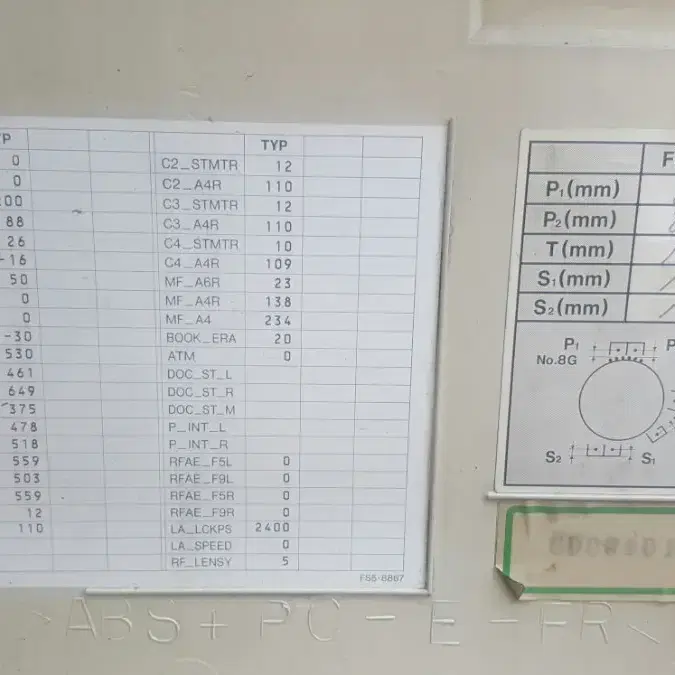 YP TYP
0 C2_STMTR 12
0 C2_A4R 110
200 C3_STMTR 12
88 C3_A4R 110
26 C4_STMTR 10
-16 C4_A4R 109
50 MF_A6R 23
0 MF_A4R 138
0 MF_A4 234
-30 BOOK_ERA 20
530 ATM 0
461 DOC_ST_L
649 DOC_ST_R
375 DOC_ST_M
478 P_INT_L
518 P_INT_R
559 RFAE_F5L 0
503 RFAE_F9L 0
559 RFAE_F5R 0
12 RFAE_F9R 0
110 LA_LCKPS 2400
LA_SPEED 0
RF_LENSY 5
F
P₁(mm)
P₂(mm)
T(mm)
S₁(mm)
S₂(mm)
P₁ P
No.8G
S₂ S₁
>ABS+PC-E-FR<